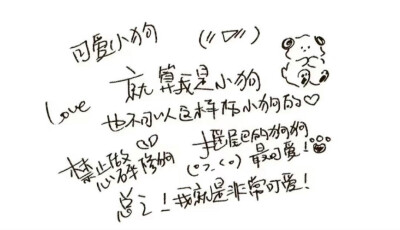 可爱小狗 (〃▽〃)
就算我是小狗
Love
也不可以这样你小狗的♡
禁止做
恶碎修狗
摇尾巴的狗狗
最可爱!
总之!我就是非常可爱!